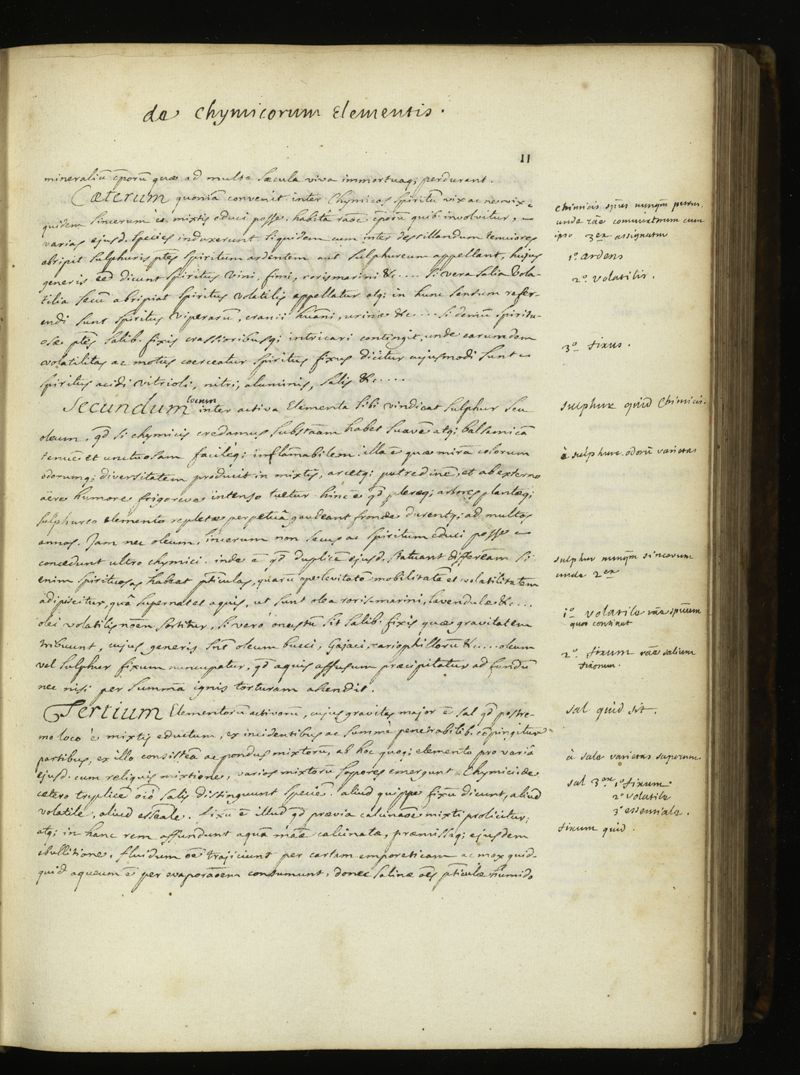 de Chymicorum Elementis.
11
mineraliū cporū quæ ad multa sæcula viva immortuaq; perdurant.
Cæterum quoniā convenit inter Chymicos spiritū vix ac ne vix
quidem sincerum ex mixtis educi posse, habitâ raōe cporū quib. involvitur,
varias ejusd. species induxerunt siquidem cum inter destillandum tenuiores
abripit sulphuris ptes spiritum ardentem aut sulphureum appellant, hujus
generis eed dicunt spiritus vini, fimi, rorismarini &c.... si vera salia vola-
tilia secū abripiat spiritus volatilis appellatur atq; in hunc sensum refer-
endi sunt spiritus viperarū, cranii hūani, urinæ &c... si deniq spiritu-
osæ ptes salib. fixis crassioribusq; intricari contingit, unde earumdem
volatilitas ac motus coerceatur spiritus fixus dicitur cujusmodi sunt
spiritus acidi vitrioli, nitri, aluminis, salis &c....
Secundum locum inter activa Elementa sibi vindicat sulphur seu
oleum, qd si chymicis credamus substāam habet suavē atq; balsamicā
tenuē et unctuosam facileq; inflāmabilem. illa ē quæ mira colorum
odorumq; diversitatem producit in mixtis, arcetq; putredinē, et ab externo
aëre humore frigoreve intenso tuetur hinc ē qd pleræq; arbores plantæq;
sulphureo elemento repletæ perpetuâ gaudeant fronde durentq; ad multos
annos. Jam nec oleum sincerum non secus ac spiritum educi posse
concedunt ultro chymici. inde ē qd duplicē ejusd. statuant differēam si
enim spirituosas habeat pticulas, quarū ope levitatē mobilitatē et volatilitatem
adipiscitur, quâ supernatet aquis, ut sunt olea rorismarini, lavendulæ &c...
olei volatilis nōen sortitur, si verò onustū sit salib. fixis quæ gravitatem
tribuunt, cujus generis snt oleum bucci, Gajaci, cariophillorū &c... oleum
vel sulphur fixum nuncupatur, qd aquis affusum præcipitatur ad fundū
nec nisi per summā ignis torturam ascendit.
Tertium Elementorū activorū, cujus gravitas major ē sal qd postre-
mo loco è mixtis eductum, ex incidentibus ac summe penetrabilib. cōpingitur
partibus, ex illo consistēa ac pondus mixtorū, ab hoc quoq; elemento pro variâ
ejusd. cum reliquis mixtione, varios mixtorū sapores emergunt. Chymici de
cætero triplicē oīo salis distinguunt speciē. aliud quippe fixū dicunt, aliud
volatile, aliud essēale. fixū ē illud qd prævia calcinaōe mixti prolicitur,
atq; in hanc rem affundunt aquā māæ calcinatæ, præmissaq; ejusdem
ebullitione, fluidum oē trajiciunt per cartam emporeticam ac mox quid-
quid aqueum ē per evaporaōem consumunt, donec salinæ oēs pticulæ humido
chimicis spūs nunqm purus,
unde rāe commixtorum cum
ipso 3ex assignatur
1º ardens
2º volatilis.
3º fixus.
sulphur quid Chimicis.
è sulphure odorū varietas
sulphur nunqm sincerum
unde 2ex
1º volatile rāe spūum
quos continet
2º fixum rāe salium
fixorum.
sal quid sit.
à sale varietas saporum
sal 3ex 1º fixum.
2º volatile
3º essentiale.
fixum quid.